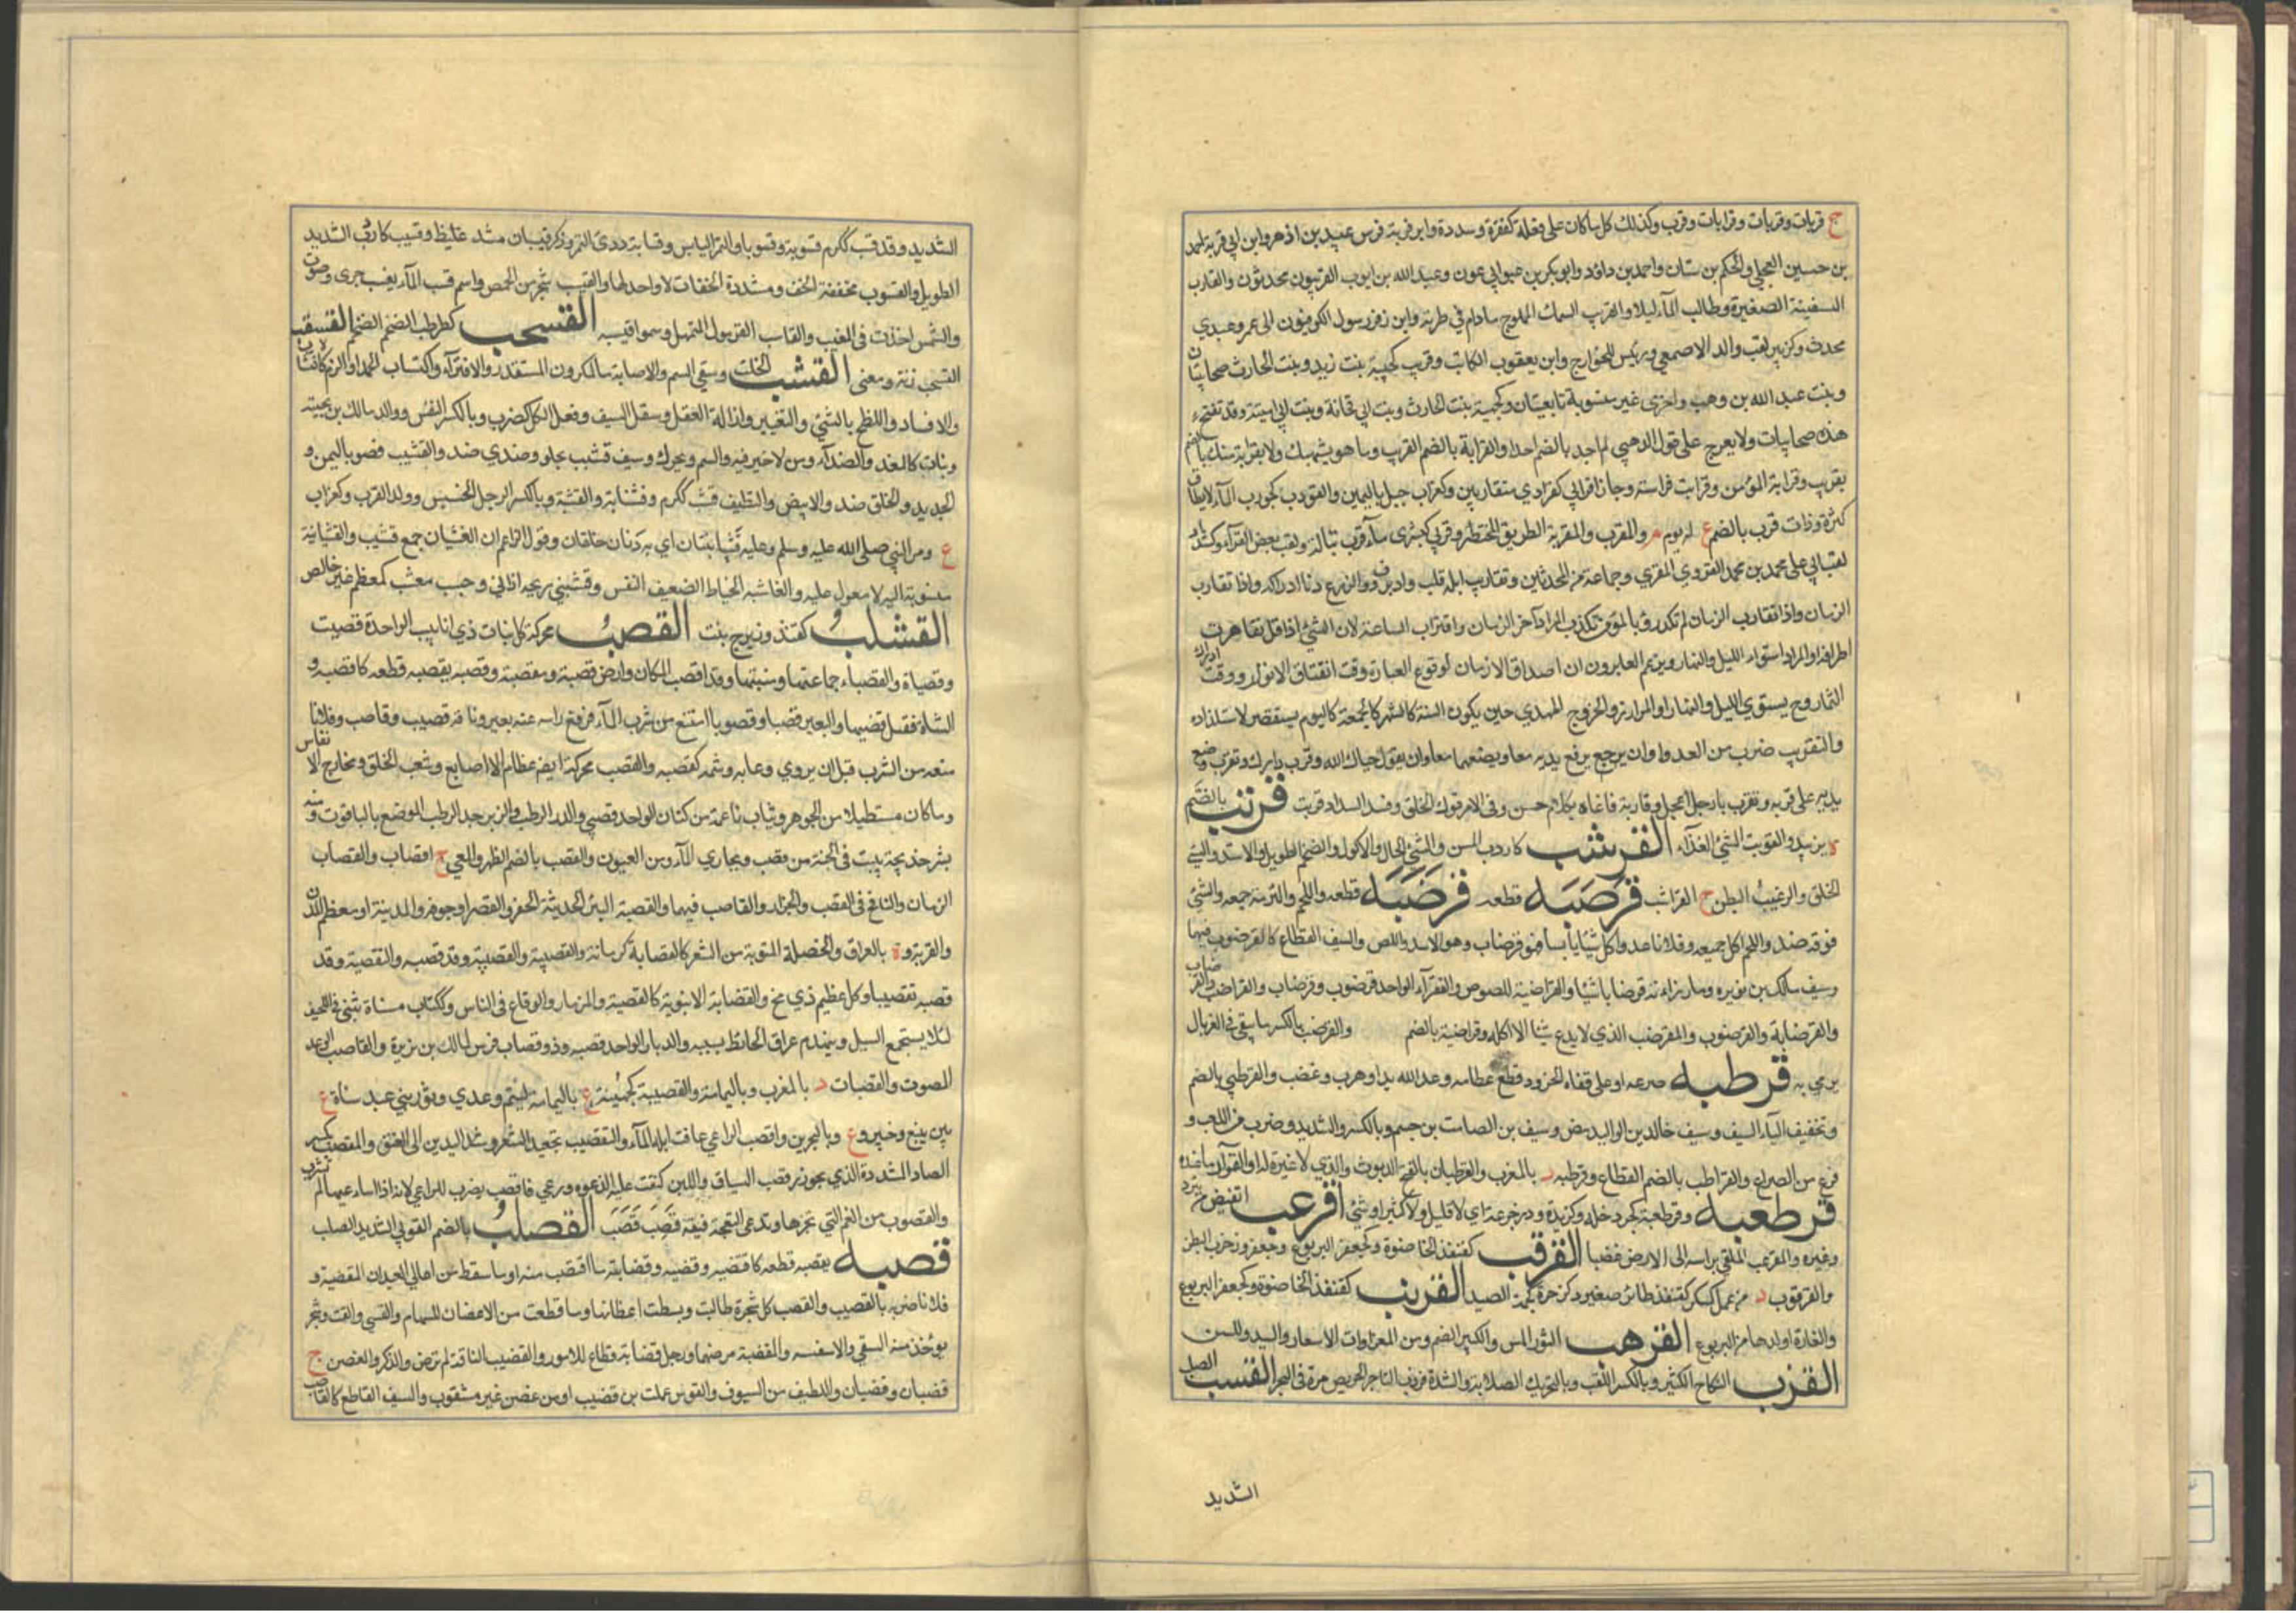 ج قربات وقربات وقرابات وقرب وكذلك كل ما كان على فعلة كفقرة وسدرة وابن قربة فرس عبيد بن ازهر وابن ابي قربة احمد
بن حسين العجلي والحكم بن سنان واحمد بن داؤد وابو بكر بن عبوابي عون وعبد الله بن ايوب القربيون محدثون والقارب
السفينة الصغيرة وطالب المآء ليلا والقريب السمك المملوح مادام في طرئه وابن زفر رسول الكوفيون الى عمر وعبدي
محدث وكزبير لقب والد الاصمعي ورئيس للخوارج وابن يعقوب الكاتب وقريب كجيبة بنت زيد وبنت الحارث صحابيتان
وبنت عبد الله بن وهب واخرى غير منسوبة تابعيتان وكجهينة بنت الحارث وبنت ابي قحافة وبنت ابي امية وقد تفتح
هذه صحابيات ولا يعرج على قول الذهبي لم اجد بالضم احدا والقرابة بالضم القريب وما هو بشبهك ولا بقرابة منك بالضم
بقريب وقرابة المؤمن وقرابت فراسته وجاؤا قرابى كفرادي متقاربين وكغراب جبل باليمن والقورب كجورب المآء لا يطاق
كثرة وذات قرب بالضم ع له يوم م والمقرب والمقربة الطريق المختصر وقربى كحبلى مآء قرب تبالة ولقب بعض القرآء وكشداد
لقب ابي على محمد بن محمد القروي المقري وجماعة من المحدثين وتقارب ابله قلت وادبرت والزرع دنا ادراكه واذا تقارب
الزمان واذا تقارب الزمان لم تكد رؤيا المؤمن تكذب المراد آخر الزمان واقتراب الساعة لان الشئ اذا قل تقاصرت
اطرافه او المراد استواء الليل والنهار ويزعم العابرون ان اصدق الازمان لوقوع العبارة وقت انفتاق الانوار ووقت ادراك
الثمار وح يستوي الليل والنهار او المراد زمن الخروج المهدي حين يكون السنة كالشهر كالجمعة كاليوم يستقصر لاستلذاذه
والتقريب ضرب من العدو او ان يرجع يرفع يديه معا ويضعهما معا وان يقول حياك الله وقرب دارك وتقرب وضع
يديه على قربه وتقرب يا رجل اعجل وقاربه ناغاه بكلام حسن وفي الامر قوله الخلق وضد السداد قربت قرتب بالضم
ة بزبيد والقرتب السئ الغذآء القرشب كاردب المسن والسئ الحال والاكول والضخم الطويل والاسد والسئ
الخلق والرغيب البطن ج القراشب قرصبه قطعه قرضبه قطعه واللحم والبرمة جمعه والشئ
فرقه ضد واللحم اكل جميعه وفلانا عدوا كل شيئا يابسا فهو قرضاب وهو الاسد واللص والسيف القطاع كالقرضوب فيهما
وسيف مالك بن نويرة وما رزاته قرضابا شيئا والقراضبة اللصوص والفقرآء الواحد قرضوب وقرضاب والقراضب والقرضاب
والقرضابة والقرضوب والمقرضب الذي لا يدع شيئا الا اكله وقراضبة بالضم والقرضب بالكسر ما يبقى في الغربال
يرمي به قرطبه صرعه او على قفاه والجزور قطع عظامه وعد الله بدا وهرب وغضب والقرطبي بالضم
وتخفيف البآء السيف وسيف خالد بن الوليد رض وسيف بن الصامت بن جسم وبالكسر والشديد وضرب من اللعب و
نوع من الصراع والقراطب بالضم القطاع وقرطبه د بالمغرب والقرطبان بالفتح الديوث والذي لا غيرة له او القواد ما عنده
قرطعبه وقرطعبة كجردحله وكزبدة ودحرجة اي لا قليل ولا كثير او شئ اقرعب انقبض من برد
وغيره والمقرعب الملقي براسه الى الارض غضبا القرقب كقنفذ الخاصرة وكجعفر اليربوع وجعفر وزخرب البطن
والقرقوب د من عمل كسكر كقنفذ طائر صغير وكزخرة لحمة الصيد القرنب كقنفذ الخاصرة وكجعفر اليربوع
والفارة او ولدها من اليربوع القرهب الثور المسن والكبير الضخم ومن المعز ذات الاشعار والسيد والمسن
القزب النكاح الكثير وبالكسر اللقب وبالتحريك الصلابة والشدة قزب التاجر الحريص مرة في البحر القسب الصلب
الشديد
الشديد وقد قسب ككرم قسوبة وقسوبا والتمر اليابس وقسابة ردئ التمر وذكر قيسبان مشتد غليظ وقسيب كاردب الشديد
الطويل والقسوب مخففة الخف ومشددة الخفاف لا واحد لها والقيسب شجر من الحمض واسم قسب المآء يقسب جرى وصوت
والشمس اخذت في المغيب والقاسب الغرمول المتمهل وسموا قيسبه القسحب كطرطب الضخم الضخم القسقب
القسحب زنة ومعنى القشب الخلط وسقي السم والاصابة بالمكروه المستقذر والافترآء واكتساب الحمد او الذم كالاقتشاب
والافساد واللطخ بالشئ والتعيير وازالة العقل وصقل السيف وفعل الكل كضرب وبالكسر النفس ووالد مالك بن بحينة
ونبات كالمغد والصدأ ومن لا خير فيه والسم ويحرك وسيف قشب مجلو وصدي ضد والقشيب قصر باليمن و
الجديد والخلق ضد والابيض والنظيف قشب ككرم وقشابة والقشبة وبالكسر الرجل الخسيس وولد القرد وكغراب
ع ومر النبي صلى الله عليه وسلم وعليه قشبانيتان اي بردتان خلقان وقول الزاعم ان القشبان جمع قشيب والقشبانية
منسوبة اليه لا معول عليه والقاشب الخياط والضعيف النفس وقشبني ريحه اذاني وحسب مقشب كمعظم غير خالص
القشلب كقنفذ وزبرج نبت القصب محركة كل نبات ذي انابيب الواحدة قصبة
وقصباة والقصباء جماعتها ومنبتها وقد اقصب المكان وارض قصبة ومقصبة وقصبه يقصبه قطعه كاقتصبه و
الشاة فصل قصبها والبعير قصبا وقصوبا امتنع من شرب المآء فرفع راسه عنه بعير وناقة قصيب وقاصب وفلانا
منعه من الشرب قبل ان يروي وعابه وشتمه كقصبه والقصب محركة ايضه عظام الاصابع وشعب الحلق ومخارج الانفاس
وما كان مستطيلا من الجوهر وثياب ناعمة من كتان الواحد قصبي والدر الرطب والزبرجد الرطب المرصع بالياقوت ومنه
بشر خديجة ببيت في الجنة من قصب ومجاري المآء من العيون والقصب بالضم الظهر والمعي ج اقصاب والقصاب
الزمار والنافخ في القصب والجزار والقاصب فيهما والقصبة البئر الحديثة الحفر والقصر او جوفه والمدينة او معظم المدن
والقرية وة بالعراق والخصلة الملتوية من الشعر كالقصابة كرمانة والقصيبة والتقصيبة وقد قصبه والتقصبة وقد
قصبه تقصيبا وكل عظم ذي مخ والقصابة الانبوبة كالقصيبة والمزمار والوقاع في الناس وككتاب مسناة تبنى في اللحف
لئلا يستجمع السيل وينهدم عراق الحائط بسببه والدبار الواحد قصبه وذو قصاب فرس لمالك بن نويرة والقاصب الرعد
المصوت والقصبات د بالمغرب وباليمامة والقصيبة كجهينة ع باليمامة لتيم وعدي وثور بني عبد مناة ع
بين ينبع وخيبر وع وبالبحرين واقصب الراعي عافت ابله المآء والتقصيب تجعيد الشعر وشد اليدين الى العنق والمقصب بكسر
الصاد المشددة الذي يحوز قصب السباق واللبن كثفت عليه الرغوه ورعي فاقصب يضرب للراعي لانه اذا اساء رعيها لم تشرب
والقصوب من الغنم التي تجزها وتدعى النعجة فيقه قصب قصب القصلب بالضم القوي الشديد الصلب
قضبه يقضبه قطعه كاقتضبه وقضبه وقضابته ما اقتضب منه او ما سقط من اعالي العيدان المقضبة و
فلانا ضربه بالقضيب والقضب كل شجرة طالت وبسطت اغصانها وما قطعت من الاغصان للسهام والقسي والقت وشجر
يؤخذ منه القسي والاسفسة والمقضبة موضعها ورجل قضابة قطاع للامور والقضيب الناقة لم ترض والذكر والغصن ج
قضبان وقضبان واللطيف من السيوف والقوس عملت من قضيب او من غصن غير مشقوق والسيف القاطع كالقاضب